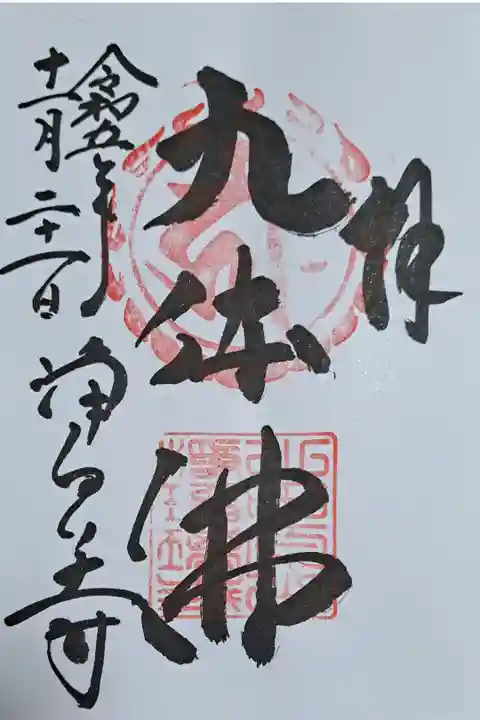 拝
九体佛
令和五年
十一月二十一日
浄るり寺